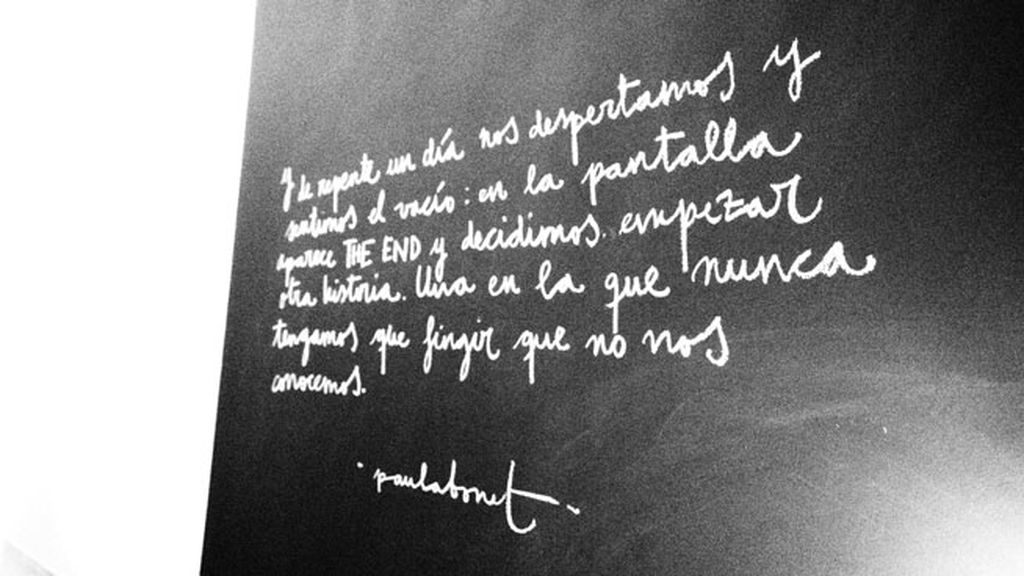 Y de repente un día nos despertamos y
sentimos el vacío: en la pantalla
aparece THE END y decidimos empezar
otra historia. Una en la que nunca
tengamos que fingir que no nos
conocemos.
·paulabonet·